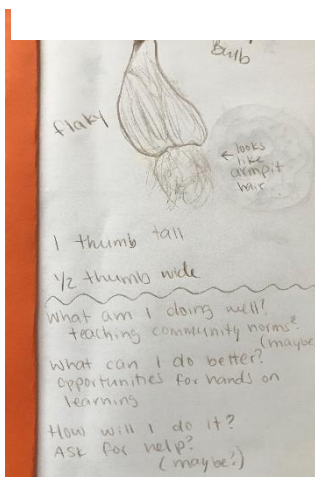 Bulb
flaky
← looks
like
armpit
hair
1 thumb tall
1/2 thumb wide
What am I doing well?
teaching community norms?
(maybe
What can I do better?
opportunities for hands on
learning
How will I do it?
Ask for help?
(maybe?)